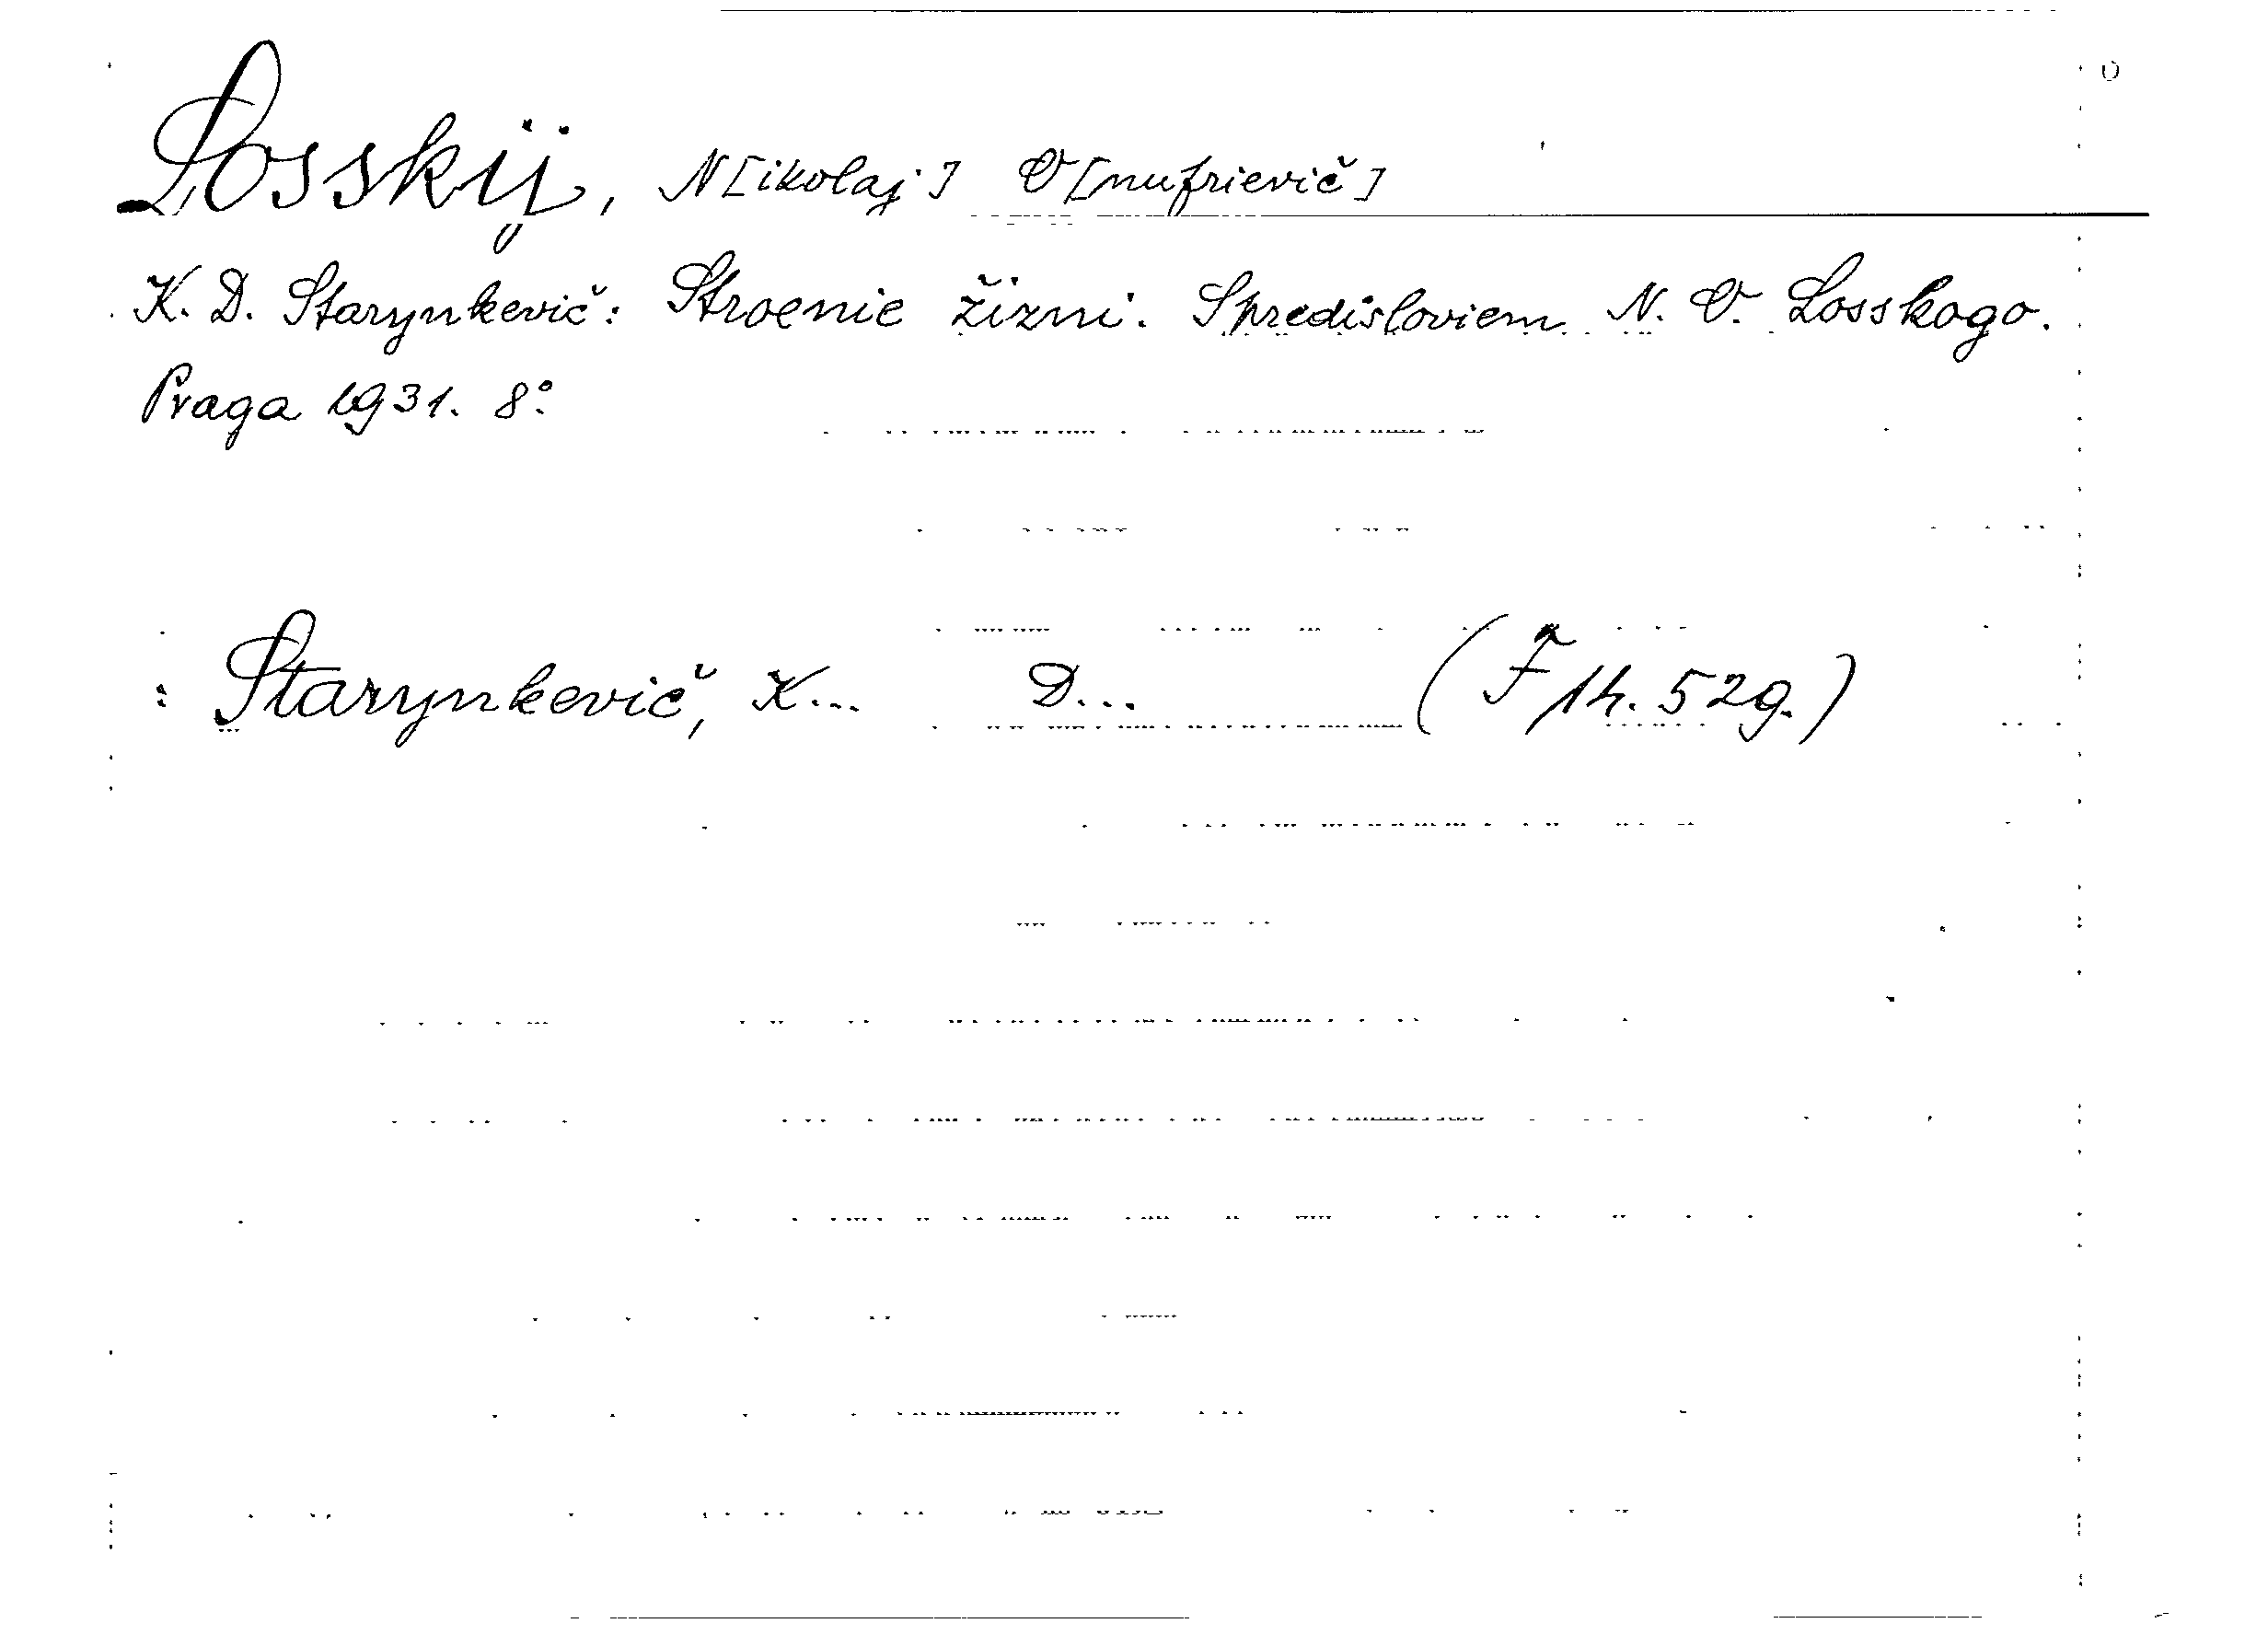 Losskij, N[ikolaj] O[nufrievič]
K. D. Starynkevič: Stroenie žizni. S predisloviem N. O. Losskogo.
Praga 1931. 8°
: Starynkevič, K... D... (F 14. 529.)